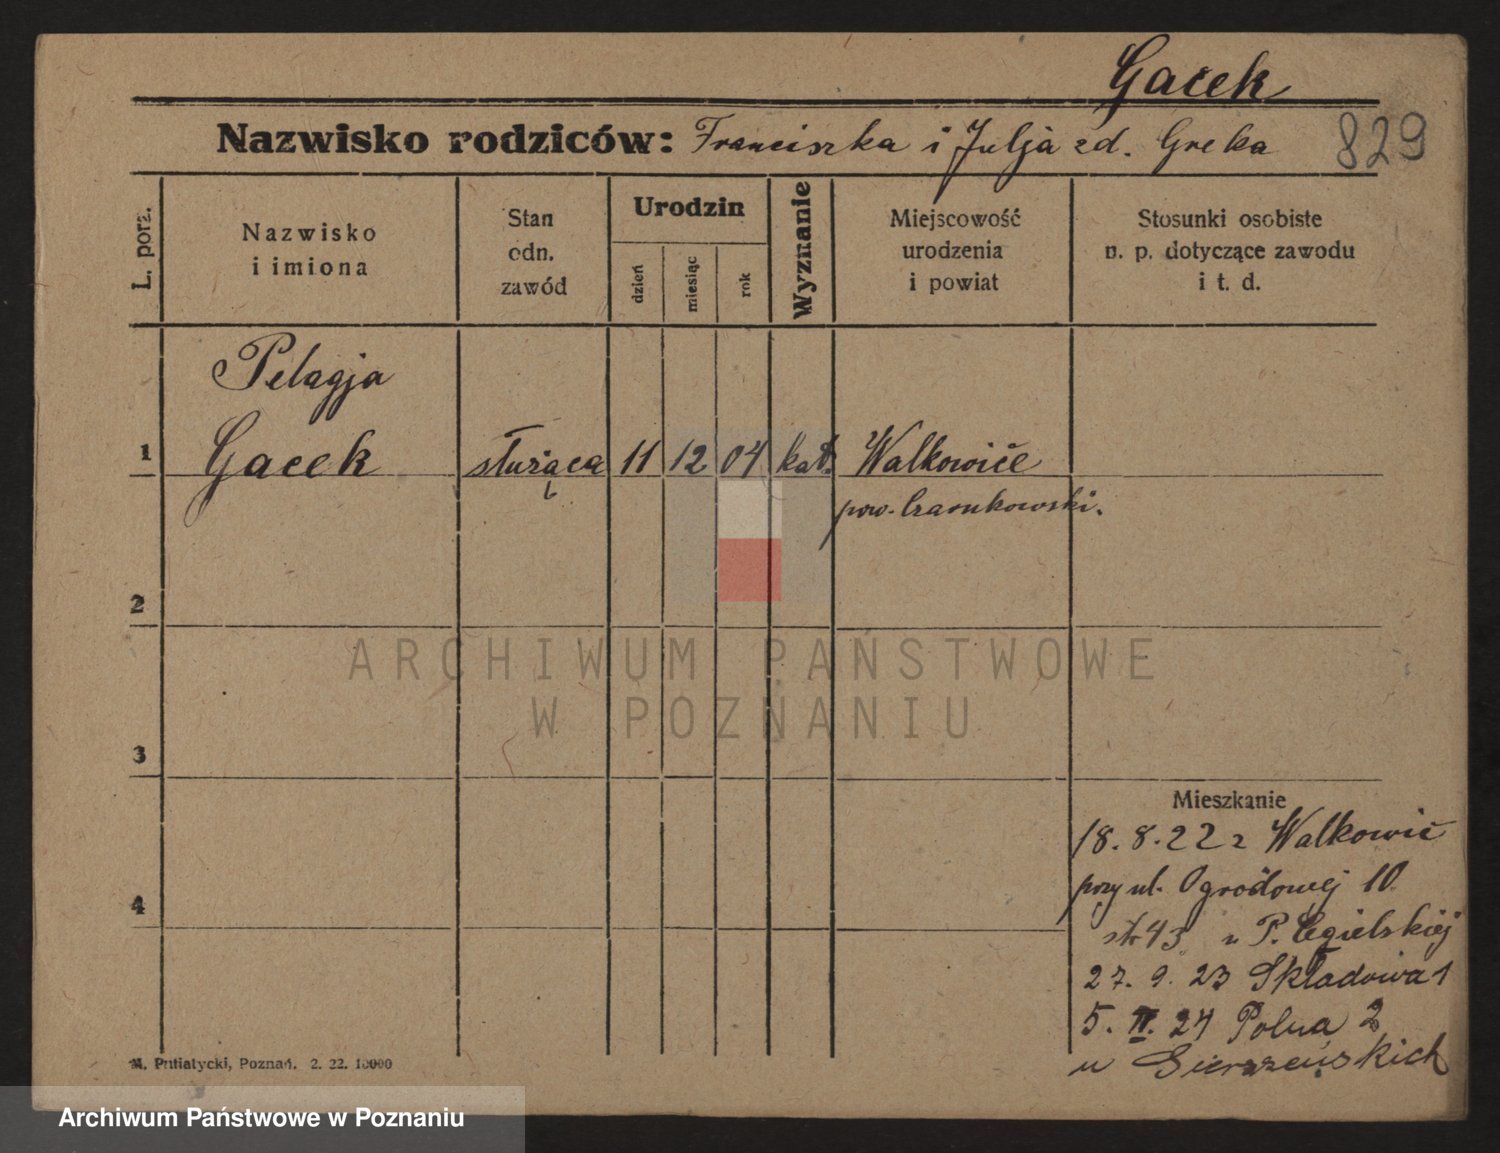 Gacek
Nazwisko rodziców: Franciszka i Julja zd. Greka
829
L. porz.
Nazwisko
i imiona
Stan
odn.
zawód
Urodzin
dzień
miesiąc
rok
Wyznanie
Miejscowość
urodzenia
i powiat
Stosunki osobiste
n. p. dotyczące zawodu
i t. d.
Pelagja
1 Gacek służąca 11 12 04 kat. Walkowice
pow. Czarnkowski.
2
ARCHIWUM PAŃSTWOWE
W POZNANIU
3
Mieszkanie
18. 8. 22 z Walkowic
przy ul. Ogrodowej 10
4
u P. Cegielskiej
27. 9. 23 Składowa 1
5. II. 24 Polna 2
u
M. Putiatycki, Poznań. 2. 22. 10000
Archiwum Państwowe w Poznaniu